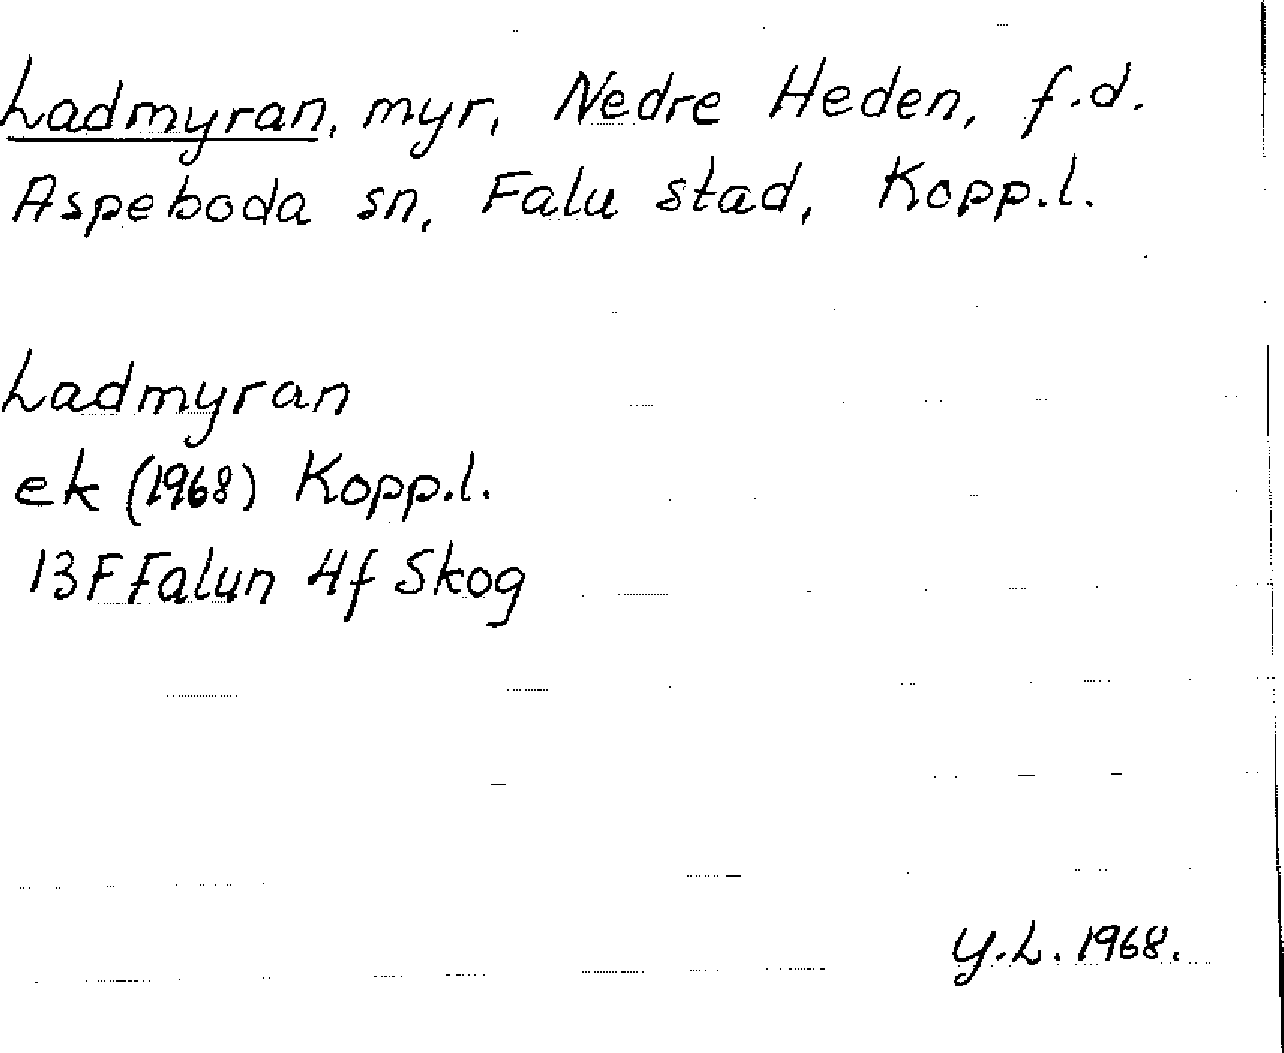 Ladmyran, myr, Nedre Heden, f.d.
Aspeboda sn, Falu stad, Kopp.l.
Ladmyran
ek (1968) Kopp.l.
13F Falun 4f Skog
Y.L. 1968.